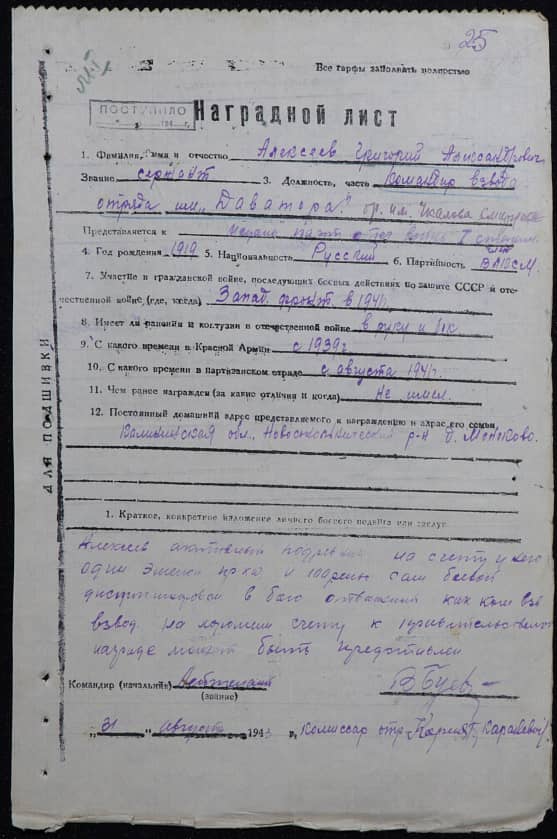 25
Все графы заполнять полностью
ПОСТУПИЛО
194 г.
Наградной лист
1. Фамилия, имя и отчество Алексеев Григорий Александрович
Звание сержант 3. Должность, часть Командир взвода
отряда им. „Даватора" бр. им. Чкалова
Представляется к
4. Год рождения 1919 5. Национальность Русский 6. Партийность ВЛКСМ
7. Участие в гражданской войне, последующих боевых действиях по защите СССР и оте-
чественной войне (где, когда) Запад. фронт в 1941г.
8. Имеет ли ранения и контузии в отечественной войне в руку и бок
9. С какого времени в Красной Армии с 1939г
10. С какого времени в партизанском отряде с августа 1941г.
11. Чем ранее награжден (за какие отличия и когда) не имел.
12. Постоянный домашний адрес представляемого к награждению и адрес его семьи
Калининская обл., р-н д.
ДЛЯ ПОДШИВКИ
1. Краткое, конкретное изложение личного боевого подвига или заслуг
Алексеев активный на счету у него
один и сам боевой
в бою отважный как ком
взвод на хорошем счету к правительственной
награде может быть представлен
Командир (начальник)
(звание)
„31 " августа 1943 г. Комиссар отр.